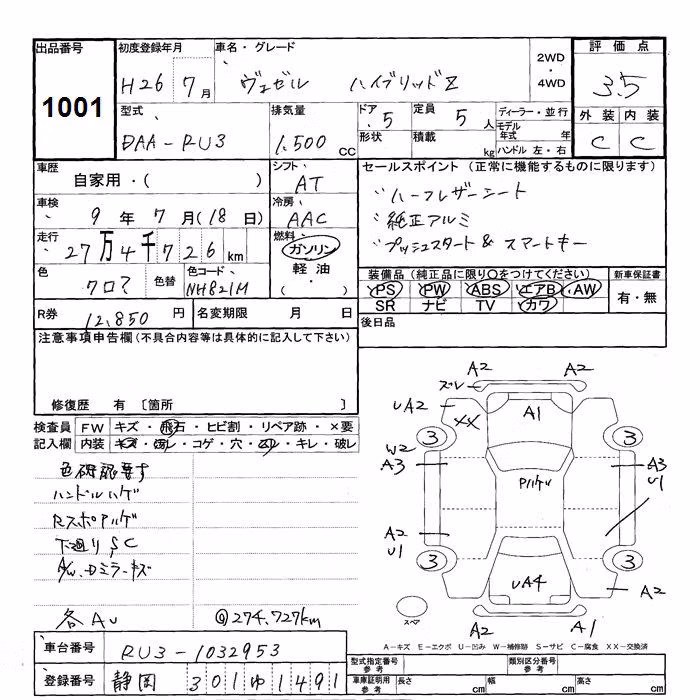 出品番号
1001
初度登録年月
H26 7月
車名・グレード
ヴェゼル ハイブリッドZ
2WD
・
4WD
評価点
3.5
外装 内装
C C
型式
DAA-RU3
排気量
1.500 CC
ドア
5
定員
5人
形状
積載
kg
ディーラー・並行
モデル年式 年
ハンドル 左・右
車歴
自家用・( )
シフト
AT
セールスポイント (正常に機能するものに限ります)
ハーフレザーシート
純正アルミ
プッシュスタート & スマートキー
車検
9年7月(18日)
冷房
AAC
走行
27万4千726km
燃料
ガソリン
軽油
・( )
色
クロア
色替
色コード
NH821M
装備品 (純正品に限り○をつけてください)
PS PW ABS エアB AW
SR ナビ TV カワ
新車保証書
有・無
R券
12,850円
名変期限 月 日
後日品
注意事項申告欄(不具合内容等は具体的に記入して下さい)
修復歴 有 〔箇所 〕
検査員 FW キズ・飛石・ヒビ割・リペア跡・×要
記入欄 内装 キズ・汚レ・コゲ・穴・スレ・キレ・破レ
色確認要す
ハンドルハゲ
Rスポアルゲ
下廻りSC
A/W、Dミラーキズ
各AU
@274,727km
A2 A2
ズレ
UA2 XX A1 A2
3 3
W2
A3
Pハゲ
A3
U1
A2
U1
3 3
UA4
A2
スペア
A2 A1
A-キズ E-エクボ U-凹み W-補修跡 S-サビ C-腐食 XX-交換済
車台番号
RU3-1032953
登録番号
静岡 301ゆ1491
型式指定番号
参考
類別区分番号
参考
車庫証明用
参考
長さ cm 幅 cm 高さ cm